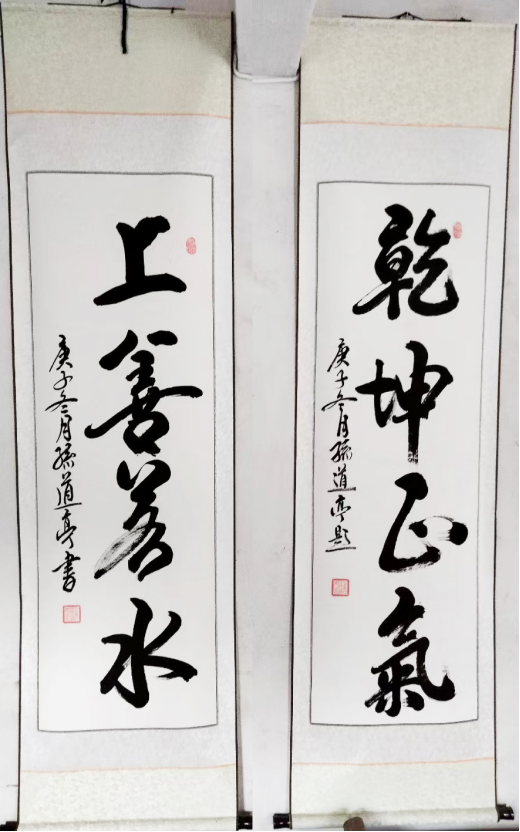 乾坤正氣
庚子冬月孫道亭題
上善若水
庚子冬月孫道亭書